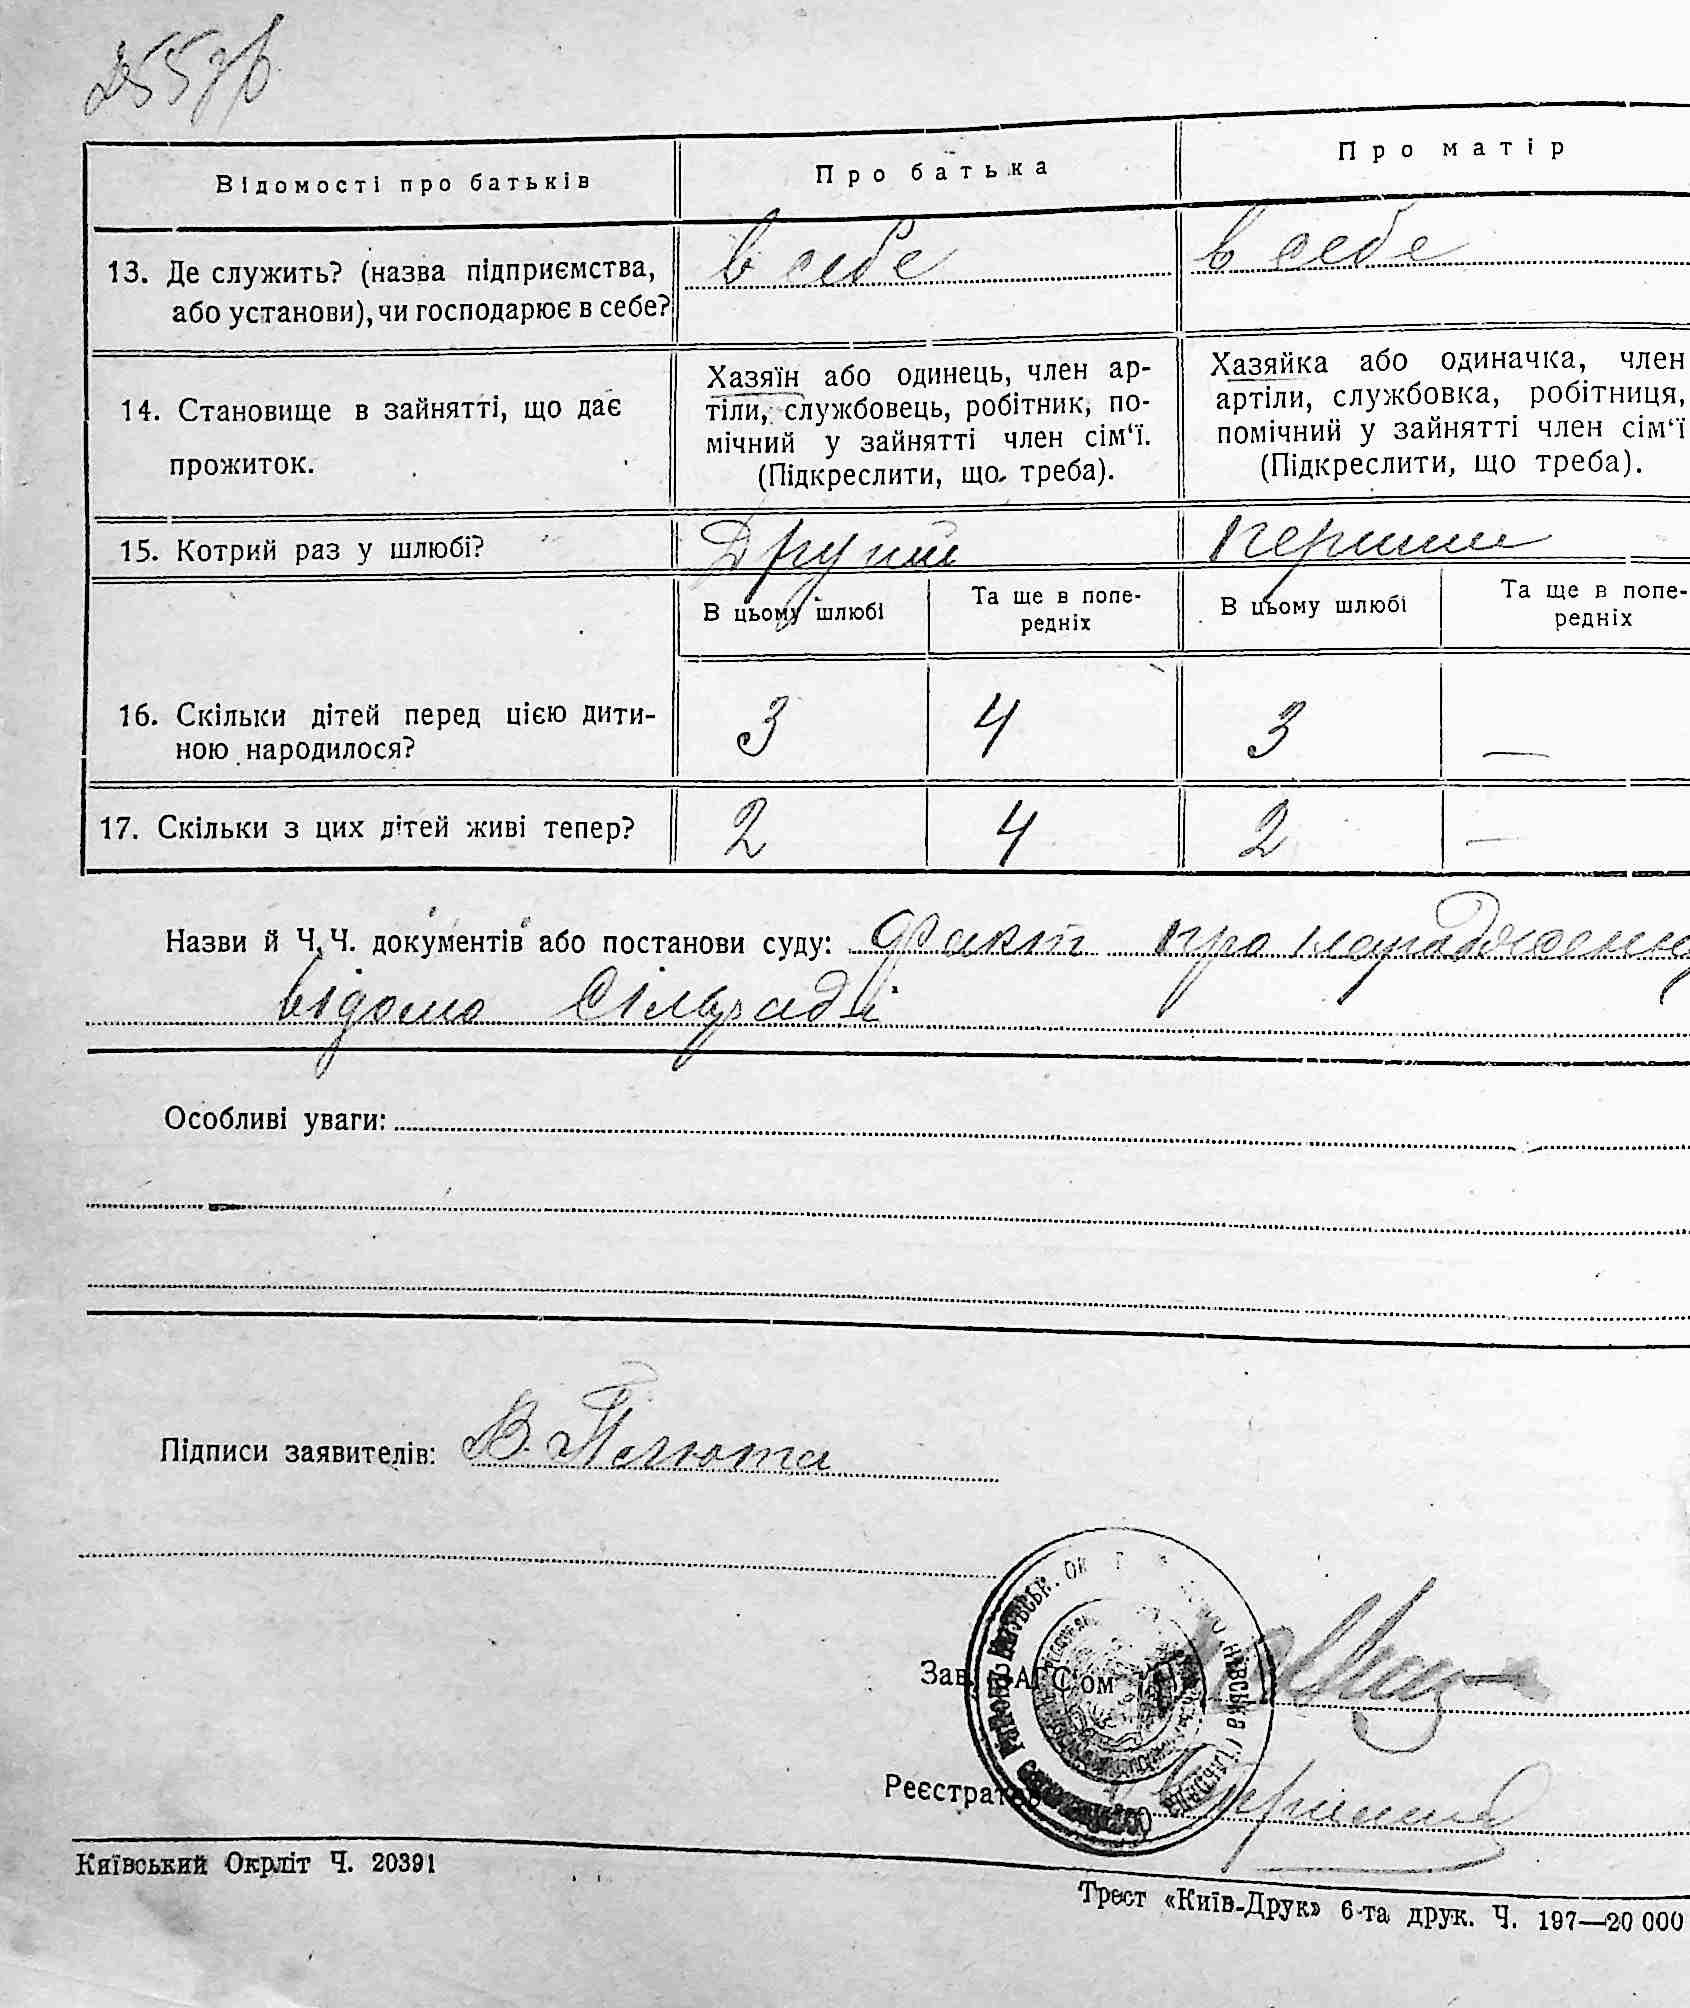 255 зв
Відомості про батьків
Про батька
Про матір
13. Де служить? (назва підприємства,
або установи), чи господарює в себе?
в себе
в себе
14. Становище в зайнятті, що дає
прожиток.
Хазяїн або одинець, член ар-
тіли, службовець, робітник, по-
мічний у зайнятті член сім‘ї.
(Підкреслити, що треба).
Хазяйка або одиначка, член
артіли, службовка, робітниця,
помічний у зайнятті член сім‘ї
(Підкреслити, що треба).
15. Котрий раз у шлюбі?
Другий
перший
В цьому шлюбі
Та ще в попе-
редніх
В цьому шлюбі
Та ще в попе-
редніх
16. Скільки дітей перед цією дити-
ною народилося?
3
4
3
—
17. Скільки з цих дітей живі тепер?
2
4
2
—
Назви й Ч.Ч. документів або постанови суду: Факт про народження
відомо Сільраді
Особливі уваги:
Підписи заявителів: В. Пелюта
Зав. ЗАГС'ом
Реєстратор
Київський Окрліт Ч. 20391
Трест «Київ-Друк» 6-та друк. Ч. 197—20 000